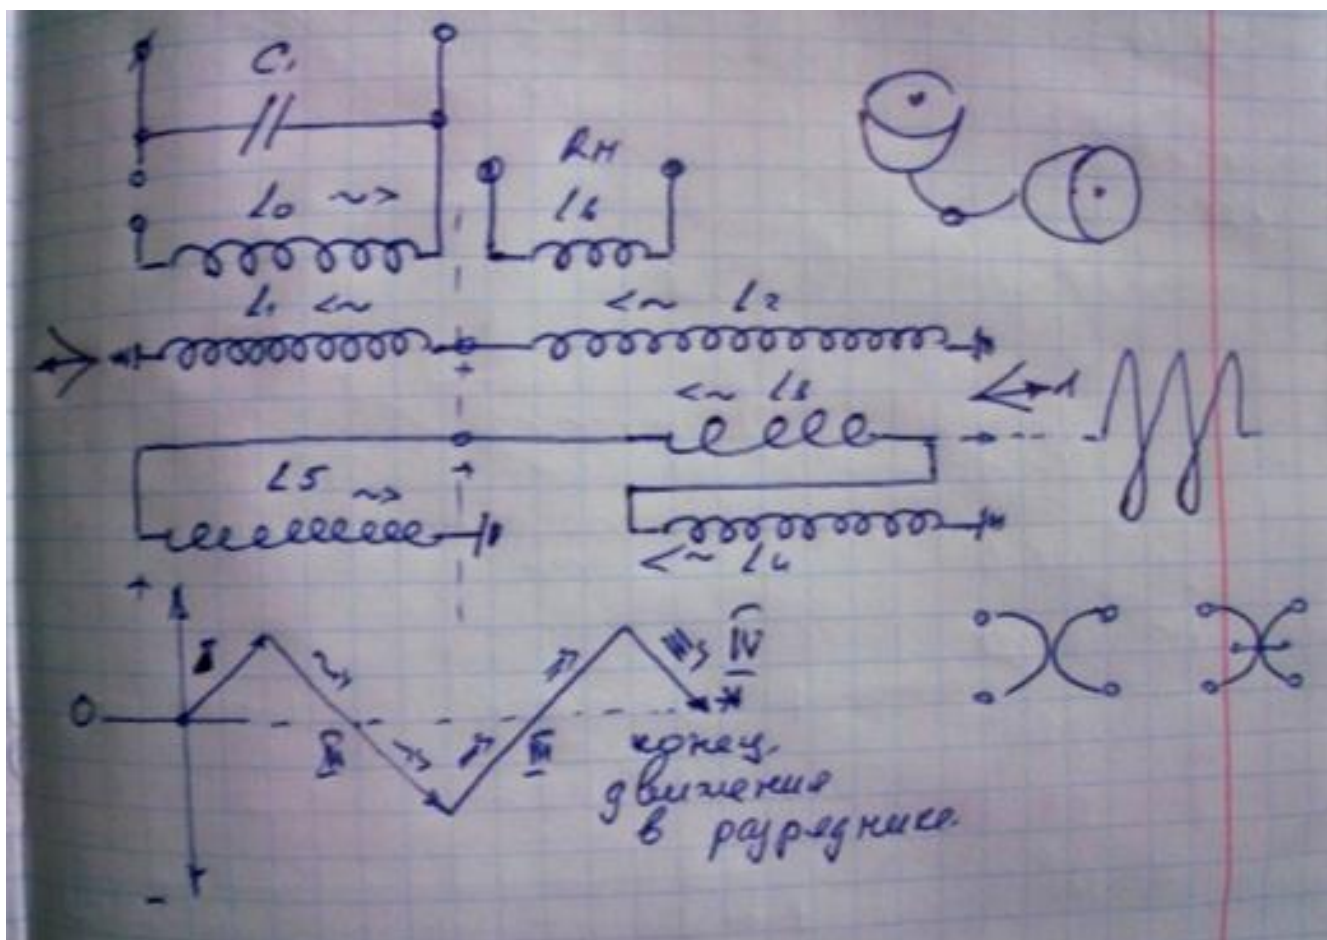 C1
RH
L0 ~>
L6
L1 <~
<~ L2
+
<~ L3
1
L5 ~>
+
<~ L4
+
I
0
II
III
IV
*
конец
движения
в разряднике.
-